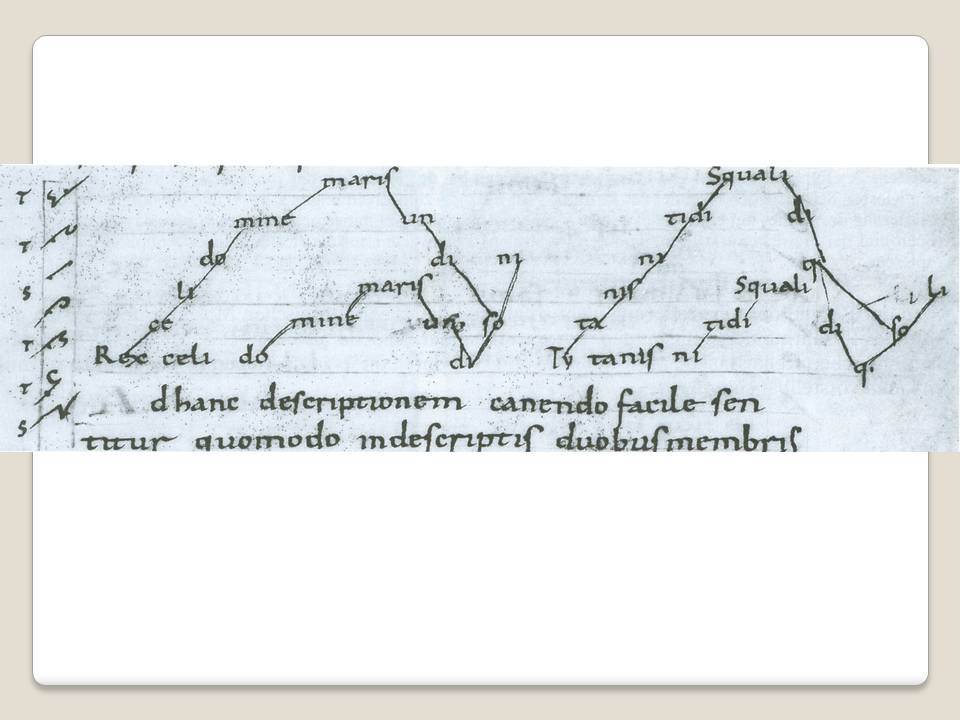 maris Squali
mine un tidi di
do di ni ni q
li maris nis Squali li
ce mine so ta tidi di so
Rex celi do di Ty tanis ni q.
d hanc descriptionem canendo facile sen
titur quomodo indescriptis duobus membris